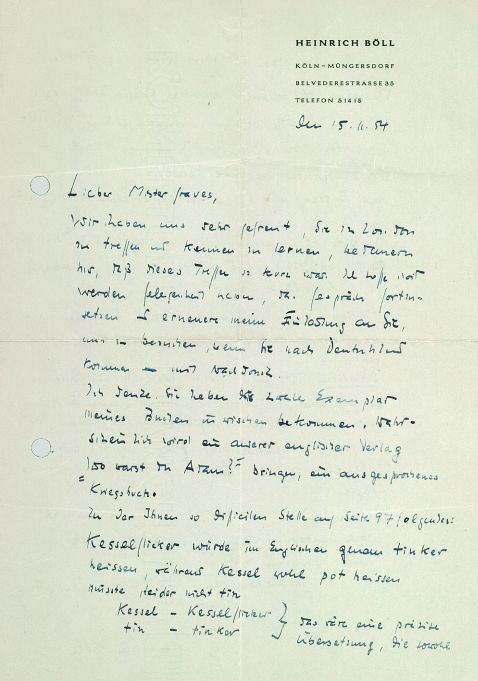 HEINRICH BÖLL
KÖLN-MÜNGERSDORF
BELVEDERESTRASSE 35
TELEFON 51415
den 15. 11. 54
Lieber Mister Graves,
wir haben uns sehr gefreut, Sie in London
zu treffen und kennen zu lernen, bedauern
nur, daß dieses Treffen so kurz war. Ich hoffe, wir
werden Gelegenheit haben, das Gespräch fortzu-
setzen und erneuere meine Einladung an Sie,
uns zu besuchen, wenn Sie nach Deutschland
kommen — mit Nachdruck.
Ich denke, Sie haben das zweite Exemplar
meines Buches inzwischen bekommen. Wahr-
scheinlich wird ein anderer englischer Verlag
"Wo warst du Adam?" bringen, ein ausgesprochenes
Kriegsbuch.
Zu der Ihnen so difficilen Stelle auf Seite 97 folgendes:
Kesselflicker würde im Englischen genau tinker
heissen, während Kessel wohl pot heissen
müsste, leider nicht tin
Kessel — Kesselflicker
tin — tinker
das wäre eine präzise
Übersetzung, die sowohl